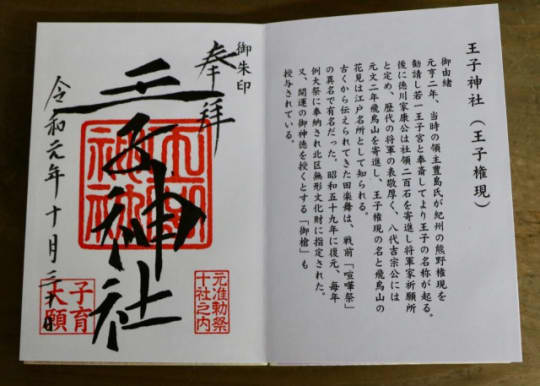 王子神社（王子権現）
御由緒
元亨二年、当時の領主豊島氏が紀州の熊野権現を
勧請し若一王子宮と奉斎してより王子の名称が起る。
後に徳川家康公は社領二百石を寄進し将軍家祈願所
と定め、歴代の将軍の表敬厚く、八代吉宗公には
元文二年飛鳥山を寄進し、王子権現の名と飛鳥山の
花見は江戸名所として知られる。
古くから伝えられてきた田楽舞は、戦前「喧嘩祭」
の異名で有名だった。昭和五十九年に復元、毎年
例大祭に奉納され北区無形文化財に指定された。
又、開運の御神徳を授くとする「御槍」も
授与されている。
御朱印
奉拝
元准勅祭
十社之内
王子神社
子育
大願
令和元年十月